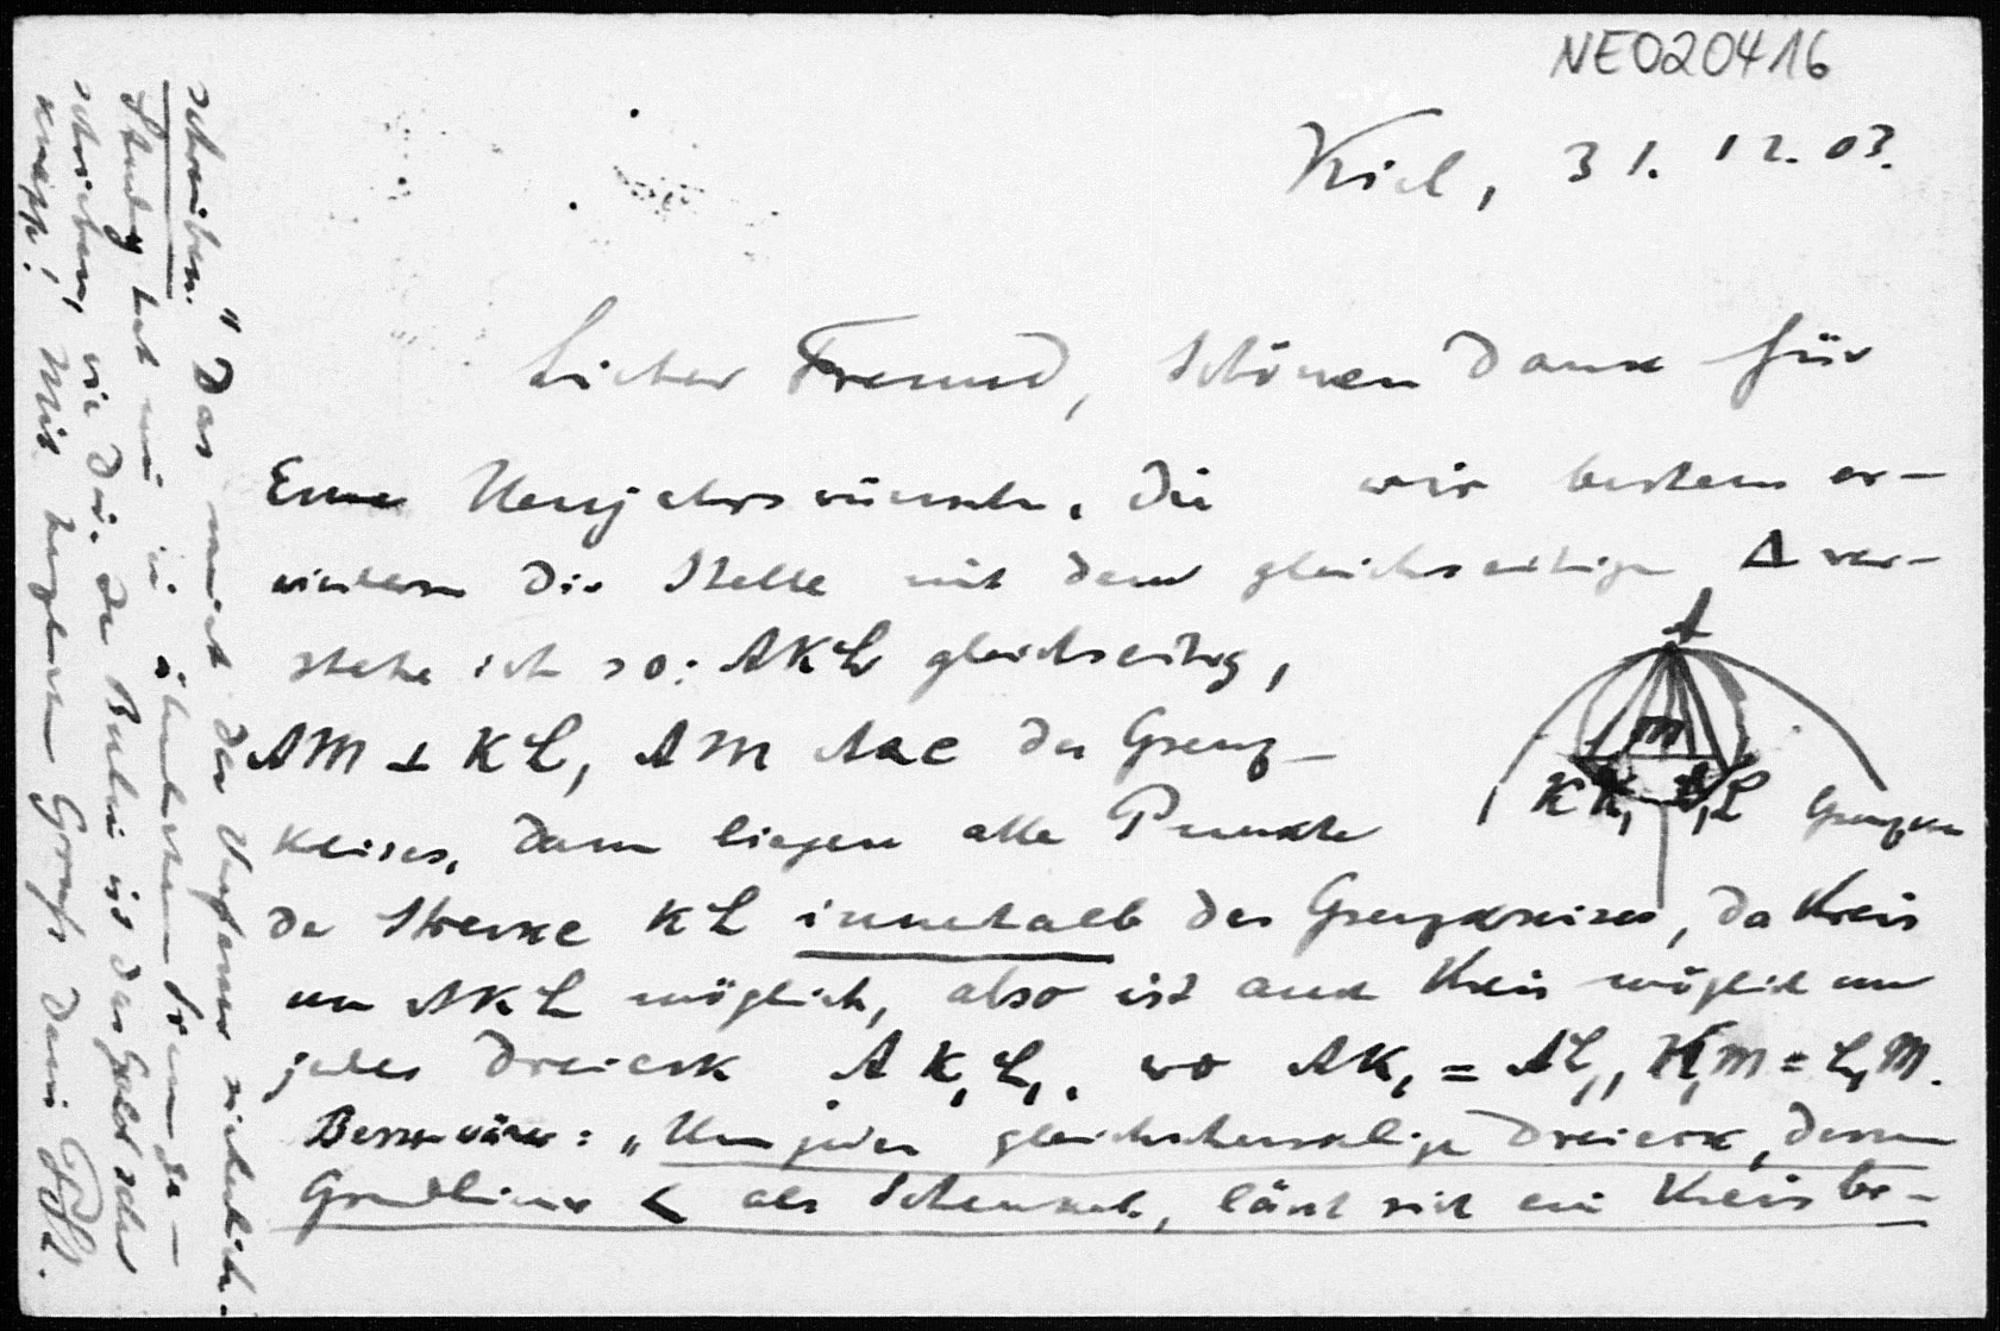 NE020416
Kiel, 31. 12. 03.
Lieber Freund, schönen Dank für
Eure Neujahrswünsche, die wir bestens er-
wiedern Die Stelle mit dem gleichseitigen Δ ver-
stehe ich so: AKL gleichseitig,
AM ⊥ KL, AM Axe des Grenz-
kreises, dann liegen alle Punkte
der Strecke KL innerhalb des Grenzkreises, da Kreis
um AKL möglich, also ist auch Kreis möglich um
jedes Dreieck A K₁ L₁, wo AK₁ = AL₁, K₁M = L₁M.
Besser wäre: „Um jedes gleichschenklige Dreieck, dessen
Grundlinie < als Schenkel, lässt sich ein Kreis be-
A
M
K K₁ L₁ L
Grenzkr
schreiben." Das meint der Verfasser sicherlich.
Study hat mir in
schrieben, wie Dir. In Berlin ist das Geld sehr
knapp! Mit herzlichem Gruß Dein